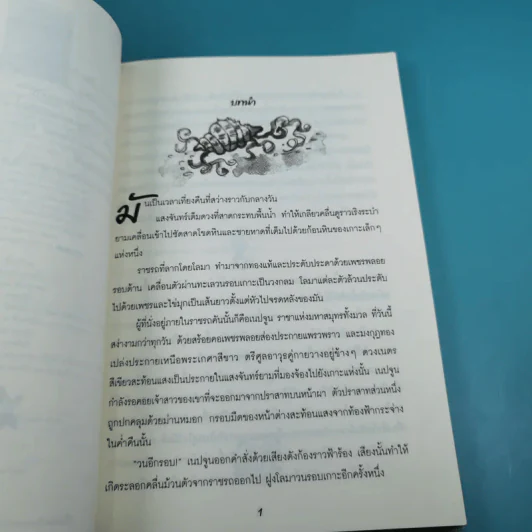 บทนำ
มันเป็นเวลาเที่ยงคืนที่สว่างราวกับกลางวัน
แสงจันทร์เต็มดวงที่สาดกระทบพื้นน้ำ ทำให้เกลียวคลื่นดูราวเริงระบำ
ยามเคลื่อนเข้าไปซัดสาดโขดหินและชายหาดที่เต็มไปด้วยก้อนหินของเกาะเล็กๆ
แห่งหนึ่ง
ราชรถที่ลากโดยโลมา ทำมาจากทองแท้และประดับประดาด้วยเพชรพลอย
รอบด้าน เคลื่อนตัวผ่านทะเลวนรอบเกาะเป็นวงกลม โลมาแต่ละตัวล้วนประดับ
ไปด้วยเพชรและไข่มุกเป็นเส้นยาวตั้งแต่หัวไปจรดหลังของมัน
ผู้ที่นั่งอยู่ภายในราชรถคันนั้นก็คือเนปจูน ราชาแห่งมหาสมุทรทั้งมวล ที่วันนี้
สง่างามกว่าทุกวัน ด้วยสร้อยคอเพชรพลอยส่องประกายแพรวพราว และมงกุฎทอง
เปล่งประกายเหนือพระเกศาสีขาว ตรีศูลอาวุธคู่กายวางอยู่ข้างๆ ดวงเนตร
สีเขียวสะท้อนแสงเป็นประกายในแสงจันทร์ยามที่มองจ้องไปยังเกาะแห่งนั้น เนปจูน
กำลังรอคอยเจ้าสาวของเขาที่จะออกมาจากปราสาทบนหน้าผา ตัวปราสาทส่วนหนึ่ง
ถูกปกคลุมด้วยม่านหมอก กรอบมืดของหน้าต่างสะท้อนแสงจากท้องฟ้ากระจ่าง
ในค่ำคืนนั้น
"วนอีกรอบ!" เนปจูนออกคำสั่งด้วยเสียงดังก้องราวฟ้าร้อง เสียงนั้นทำให้
เกิดระลอกคลื่นม้วนตัวจากราชรถออกไป ฝูงโลมาวนรอบเกาะอีกครั้งหนึ่ง
1